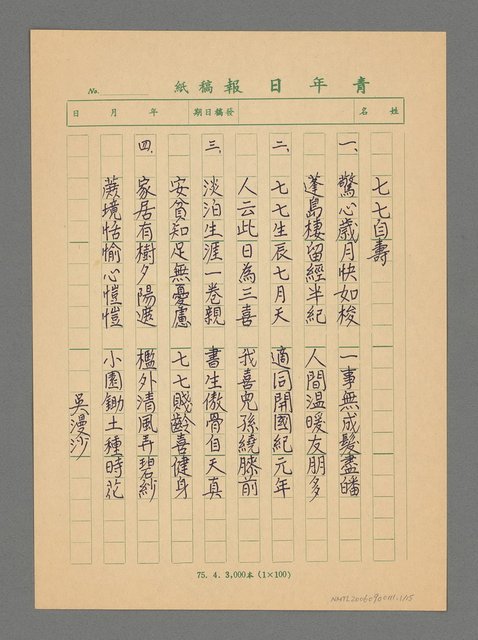 青年日報稿紙
No.
姓名
發稿日期
年 月 日
七七自壽
一、驚心歲月快如梭 一事無成髮盡皤
蓬島棲留經半紀 人間溫暖友朋多
二、七七生辰七月天 適同開國紀元年
人云此日為三喜 我喜兒孫繞膝前
三、淡泊生涯一卷親 書生傲骨自天真
安貧知足無憂慮 七七賤齡喜健身
四、家居有樹夕陽遮 檻外清風弄碧紗
蔗境恬愉心愷愷 小園鋤土種時花
吳漫沙
75. 4. 3,000本 (1×100)
NMTL20060900111-1/15